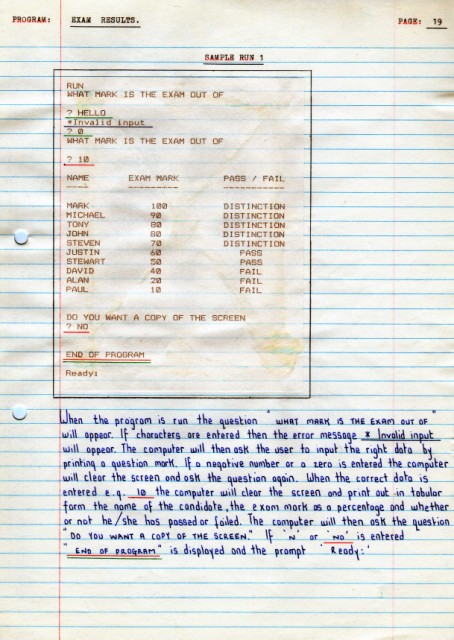 PROGRAM: EXAM RESULTS. PAGE: 19
SAMPLE RUN 1
RUN
WHAT MARK IS THE EXAM OUT OF
? HELLO
*Invalid input
? 0
WHAT MARK IS THE EXAM OUT OF
? 10
NAME EXAM MARK PASS / FAIL
---- --------- -----------
MARK 100 DISTINCTION
MICHAEL 90 DISTINCTION
TONY 80 DISTINCTION
JOHN 80 DISTINCTION
STEVEN 70 DISTINCTION
JUSTIN 60 PASS
STEWART 50 PASS
DAVID 40 FAIL
ALAN 20 FAIL
PAUL 10 FAIL
DO YOU WANT A COPY OF THE SCREEN
? NO
END OF PROGRAM
Ready:
When the program is run the question "WHAT MARK IS THE EXAM OUT OF"
will appear. If characters are entered then the error message * Invalid input
will appear. The computer will then ask the user to input the right data by
printing a question mark. If a negative number or a zero is entered the computer
will clear the screen and ask the question again. When the correct data is
entered e.g. 10 the computer will clear the screen and print out in tabular
form the name of the candidate, the exam mark as a percentage and whether
or not he/she has passed or failed. The computer will then ask the question
"DO YOU WANT A COPY OF THE SCREEN." If 'N' or 'NO' is entered
"END OF PROGRAM" is displayed and the prompt 'Ready:'